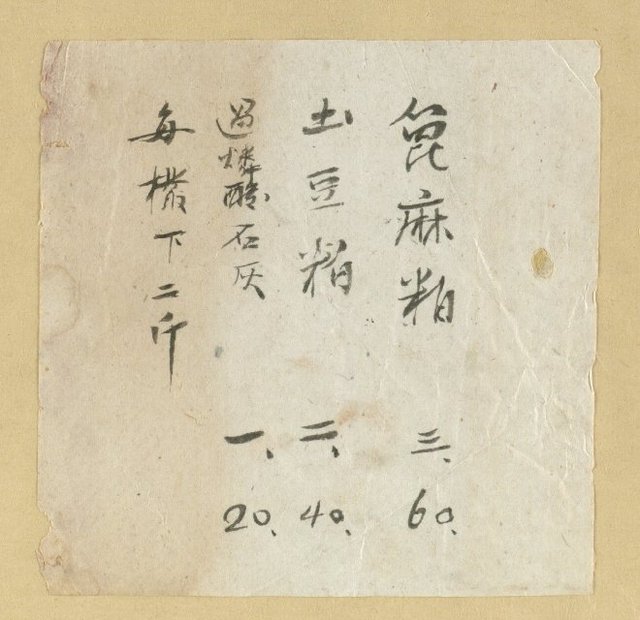 篦麻粕 三、 60、
土豆粕 二、 40、
過燐酸石灰 一、 20、
每欉下二斤